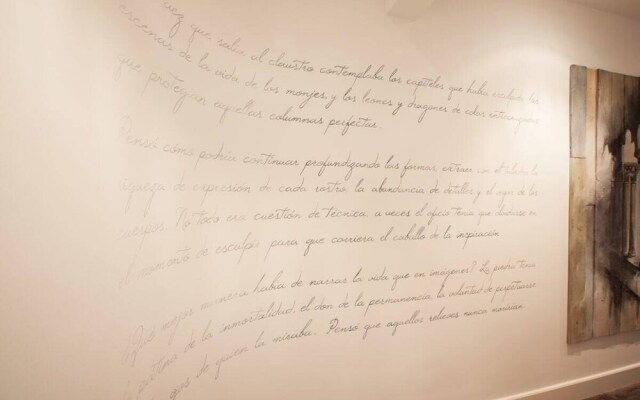 vez que salía al claustro contemplaba los capiteles que había esculpido, las
escenas de la vida de los monjes y los leones y dragones de colas entrelazadas
que protegían aquellas columnas perfectas.
Pensó cómo podría continuar profundizando las formas, extraer con el
de expresión de cada rostro, la abundancia de detalles y el de los
cuerpos. No todo era cuestión de técnica, a veces el oficio tenía que en
el momento de esculpir para que corriera el caballo de la inspiración.
¿Qué mejor manera había de narrar la vida que en imágenes? La piedra tenía
la pátina de la inmortalidad, el don de la permanencia, la voluntad de perpetuarse
de quien la miraba. Pensó que aquellos relieves nunca morirían